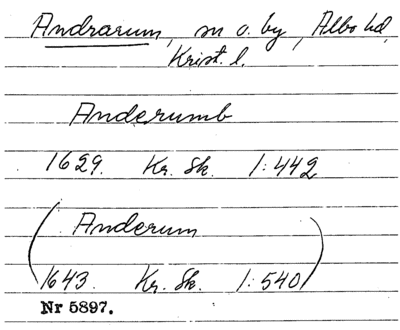 Andrarum, sn o. by, Albo hd,
Krist. l.
Anderumb
1629. Kr. Sk. 1:442
(Anderum
1643. Kr. Sk. 1:540)
Nr 5897.